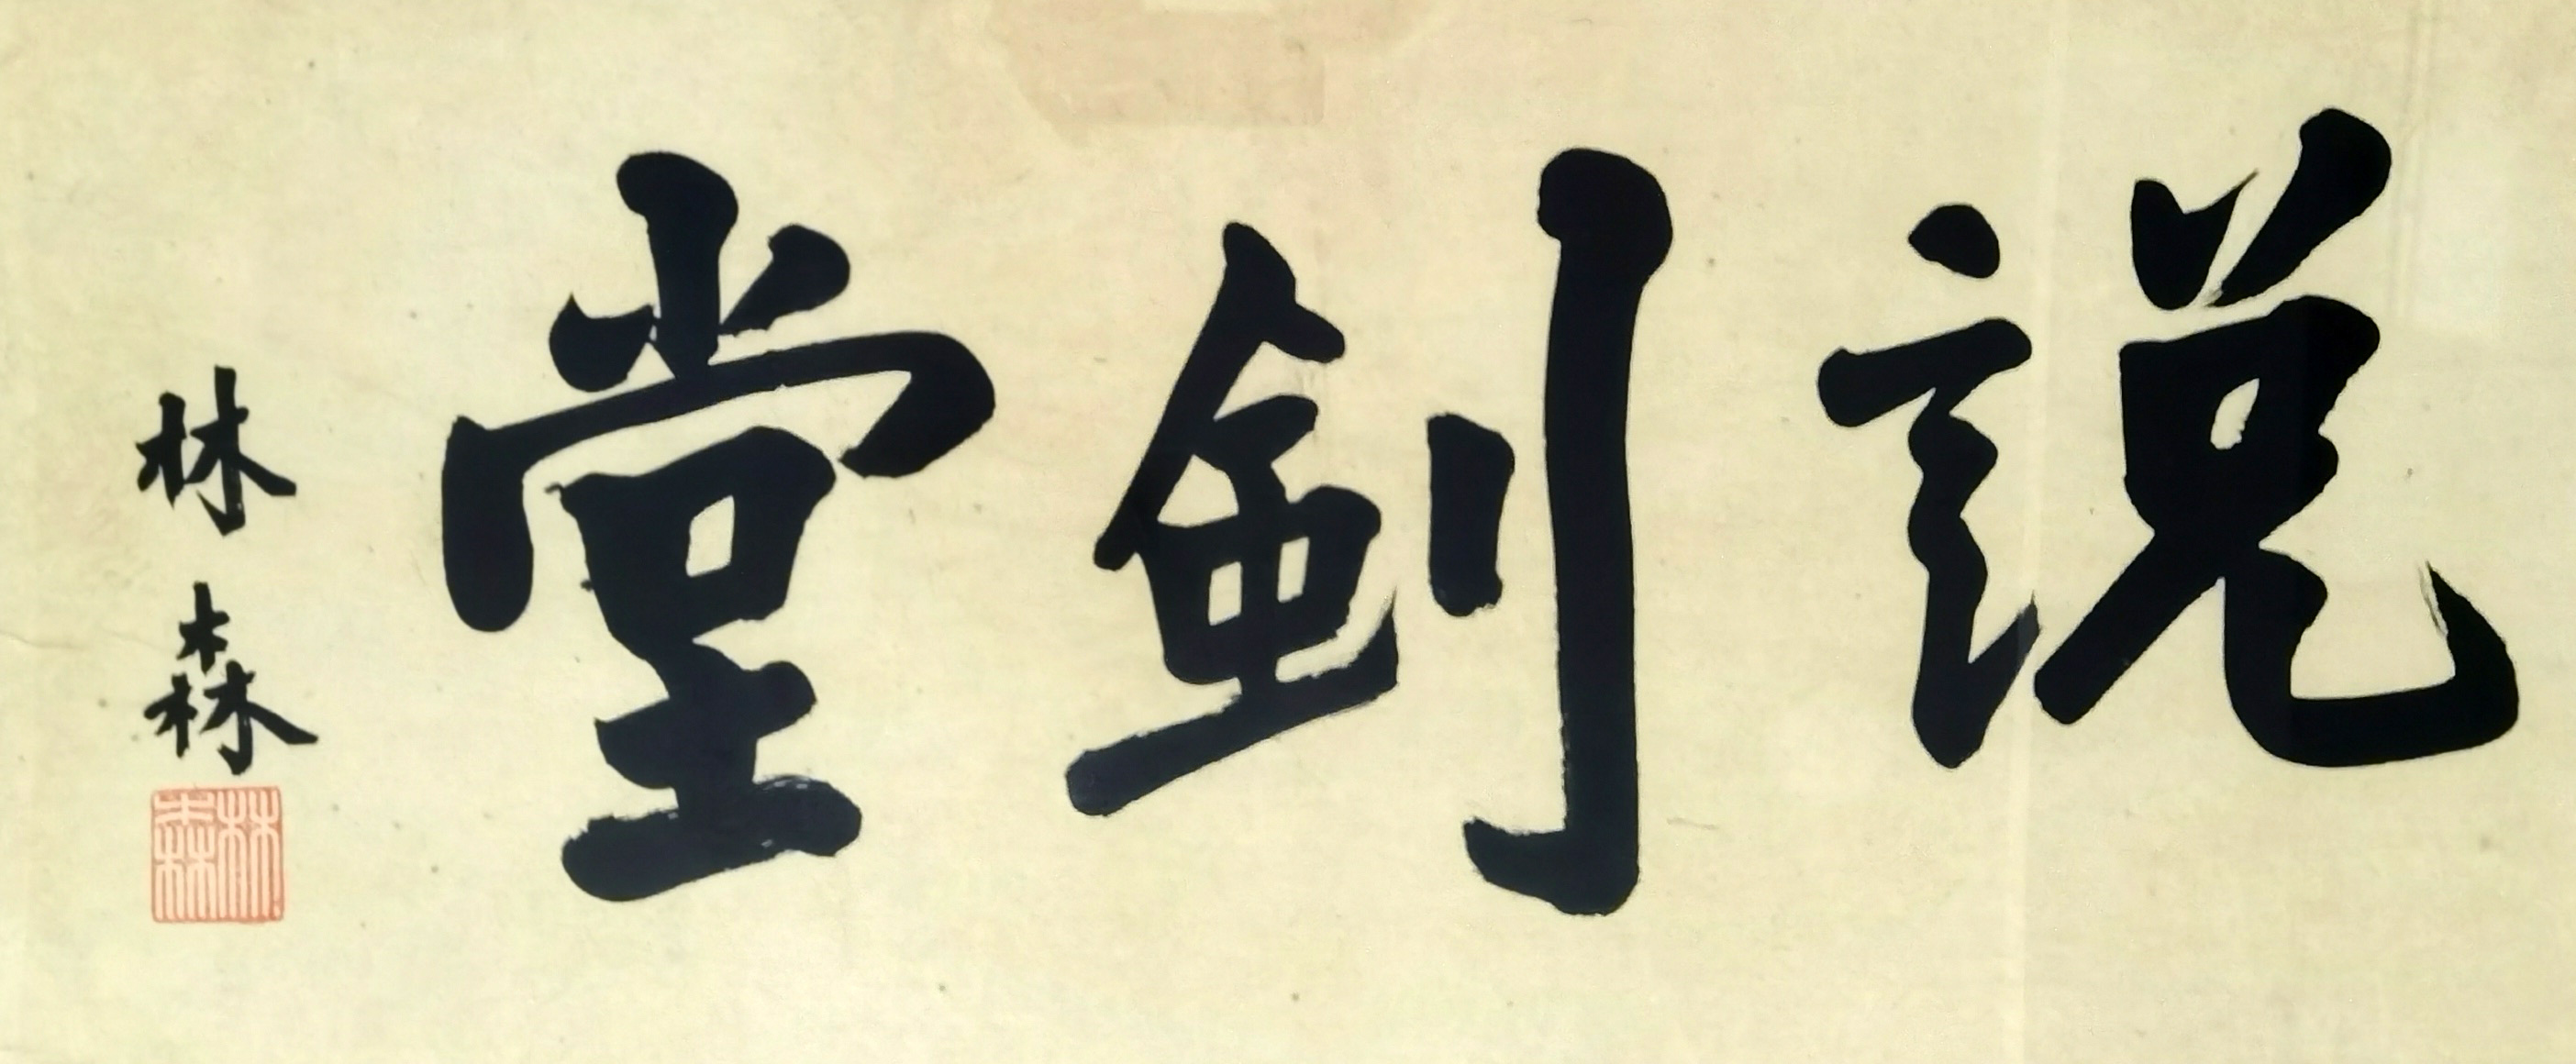 說劍堂
林森
林森